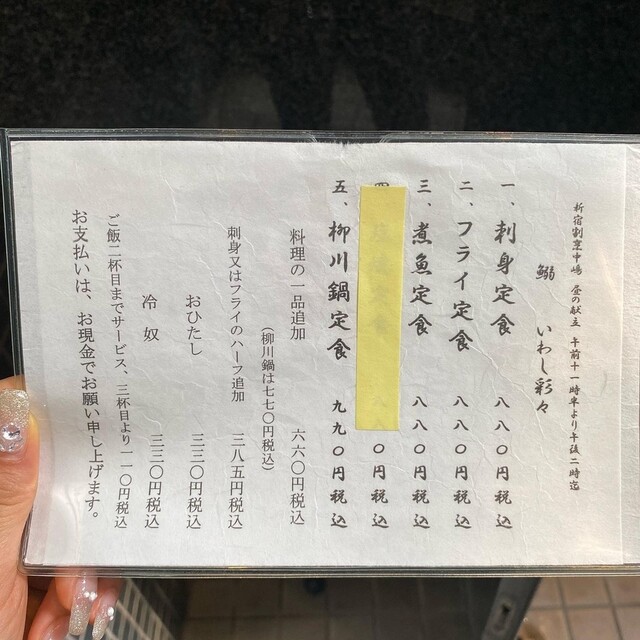 新宿割烹中嶋 昼の献立 午前十一時半より午後二時迄
鰯 いわし彩々
一、刺身定食 八八〇円税込
二、フライ定食 八八〇円税込
三、煮魚定食 八八〇円税込
四、 〇円税込
五、柳川鍋定食 九九〇円税込
料理の一品追加 六六〇円税込
(柳川鍋は七七〇円税込)
刺身又はフライのハーフ追加 三八五円税込
おひたし 三三〇円税込
冷奴 三三〇円税込
ご飯二杯目までサービス、三杯目より一一〇円税込
お支払いは、お現金でお願い申し上げます。